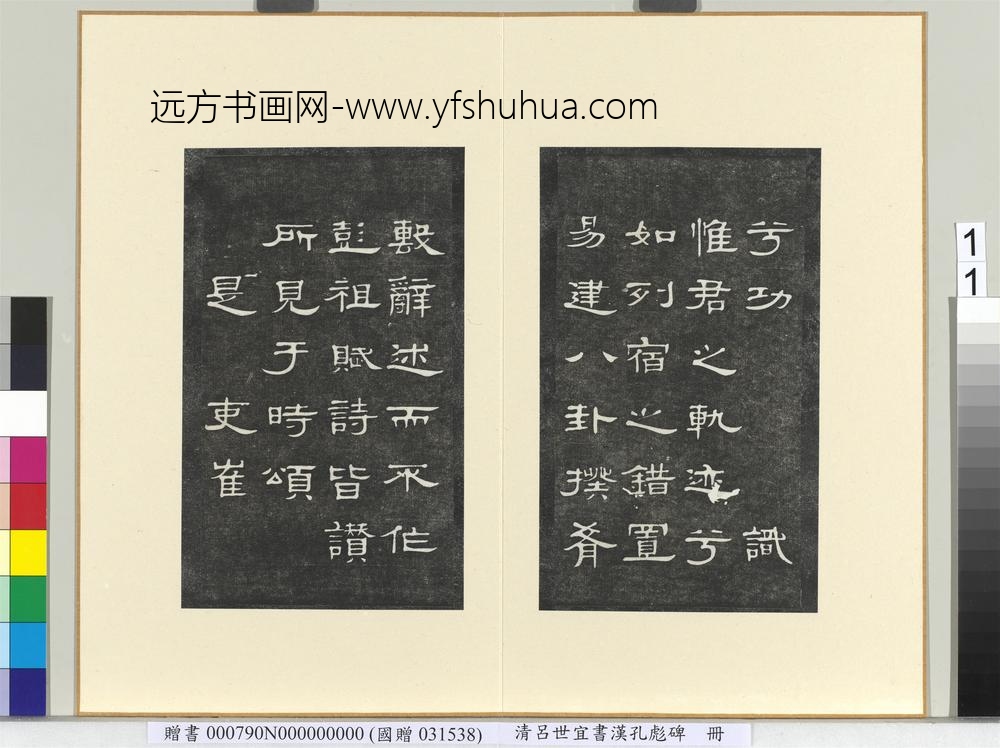 远方书画网-www.yfshuhua.com
兮功 識
惟君之軌迹兮
如列宿之錯置
易建八卦揆肴
毄辭述而不作
彭祖賦詩皆讃
所見于時頌
是吏崔
1
1
贈書 000790N000000000 (國贈 031538) 清呂世宜書漢孔彪碑 冊